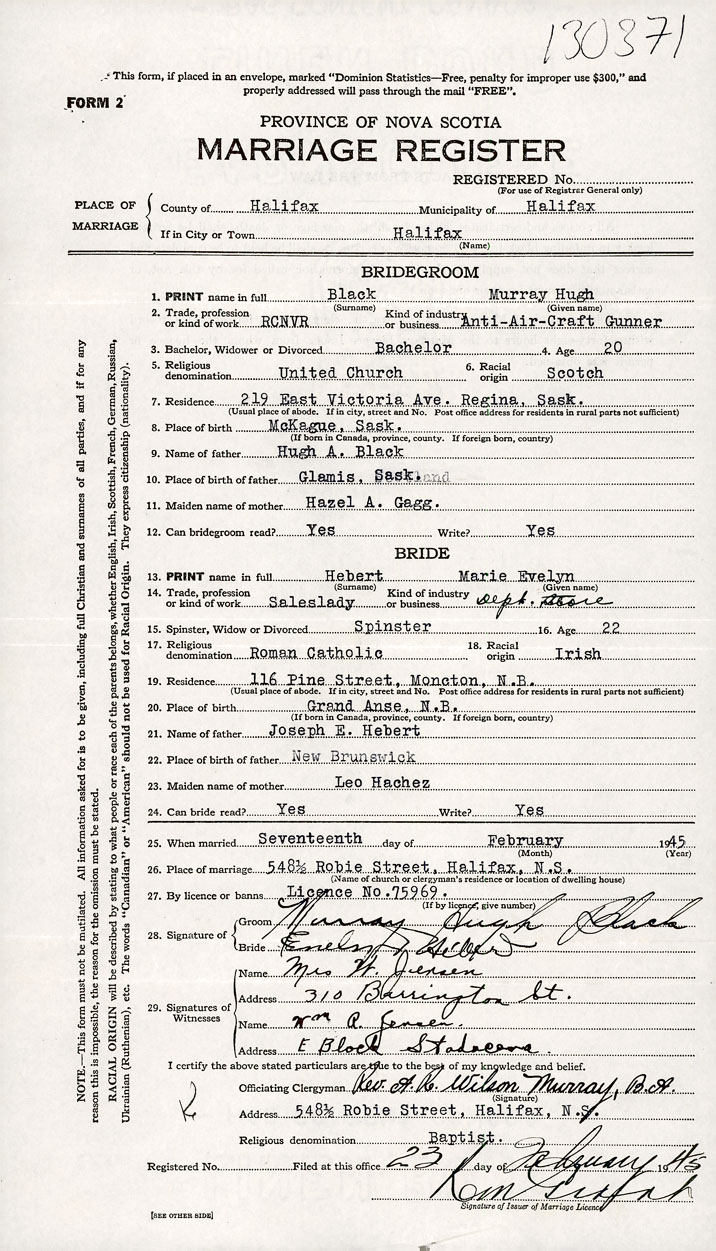 130371
This form, if placed in an envelope, marked "Dominion Statistics—Free, penalty for improper use $300," and
properly addressed will pass through the mail "FREE".
FORM 2
PROVINCE OF NOVA SCOTIA
MARRIAGE REGISTER
REGISTERED No.
(For use of Registrar General only)
PLACE OF MARRIAGE
County of Halifax Municipality of Halifax
If in City or Town Halifax
(Name)
BRIDEGROOM
1. PRINT name in full Black Murray Hugh
(Surname) (Given name)
2. Trade, profession or kind of work RCNVR Kind of industry or business Anti-Air-Craft Gunner
3. Bachelor, Widower or Divorced Bachelor 4. Age 20
5. Religious denomination United Church 6. Racial origin Scotch
7. Residence 219 East Victoria Ave. Regina, Sask.
(Usual place of abode. If in city, street and No. Post office address for residents in rural parts not sufficient)
8. Place of birth McKague, Sask.
(If born in Canada, province, county. If foreign born, country)
9. Name of father Hugh A. Black
10. Place of birth of father Glamis, Sask.
11. Maiden name of mother Hazel A. Gagg.
12. Can bridegroom read? Yes Write? Yes
BRIDE
13. PRINT name in full Hebert Marie Evelyn
(Surname) (Given name)
14. Trade, profession or kind of work Saleslady Kind of industry or business dept. store
15. Spinster, Widow or Divorced Spinster 16. Age 22
17. Religious denomination Roman Catholic 18. Racial origin Irish
19. Residence 116 Pine Street, Moncton, N.B.
(Usual place of abode. If in city, street and No. Post office address for residents in rural parts not sufficient)
20. Place of birth Grand Anse, N.B.
(If born in Canada, province, county. If foreign born, country)
21. Name of father Joseph E. Hebert
22. Place of birth of father New Brunswick
23. Maiden name of mother Leo Hachez
24. Can bride read? Yes Write? Yes
25. When married Seventeenth day of February 1945
(Month) (Year)
26. Place of marriage 548½ Robie Street, Halifax, N.S.
(Name of church or clergyman's residence or location of dwelling house)
27. By licence or banns Licence No.75969.
(If by licence, give number)
28. Signature of
Groom Murray Hugh Black
Bride Evelyn Hebert
29. Signatures of Witnesses
Name Mrs W. Jensen
Address 310 Barrington St.
Name Wm A. Jensen.
Address E Block Stadacona.
I certify the above stated particulars are true to the best of my knowledge and belief.
Officiating Clergyman Rev. A. K. Wilson Murray, B.A.
(Signature)
Address 548½ Robie Street, Halifax, N.S.
Religious denomination Baptist.
Registered No. Filed at this office 23 day of February 1945
Signature of Issuer of Marriage Licence
[SEE OTHER SIDE]
NOTE.—This form must not be mutilated. All information asked for is to be given, including full Christian and surnames of all parties, and if for any
reason this is impossible, the reason for the omission must be stated.
RACIAL ORIGIN will be described by stating to what people or race each of the parents belongs, whether English, Irish, Scottish, French, German, Russian,
Ukrainian (Ruthenian), etc. The words "Canadian" or "American" should not be used for Racial Origin. They express citizenship (nationality).